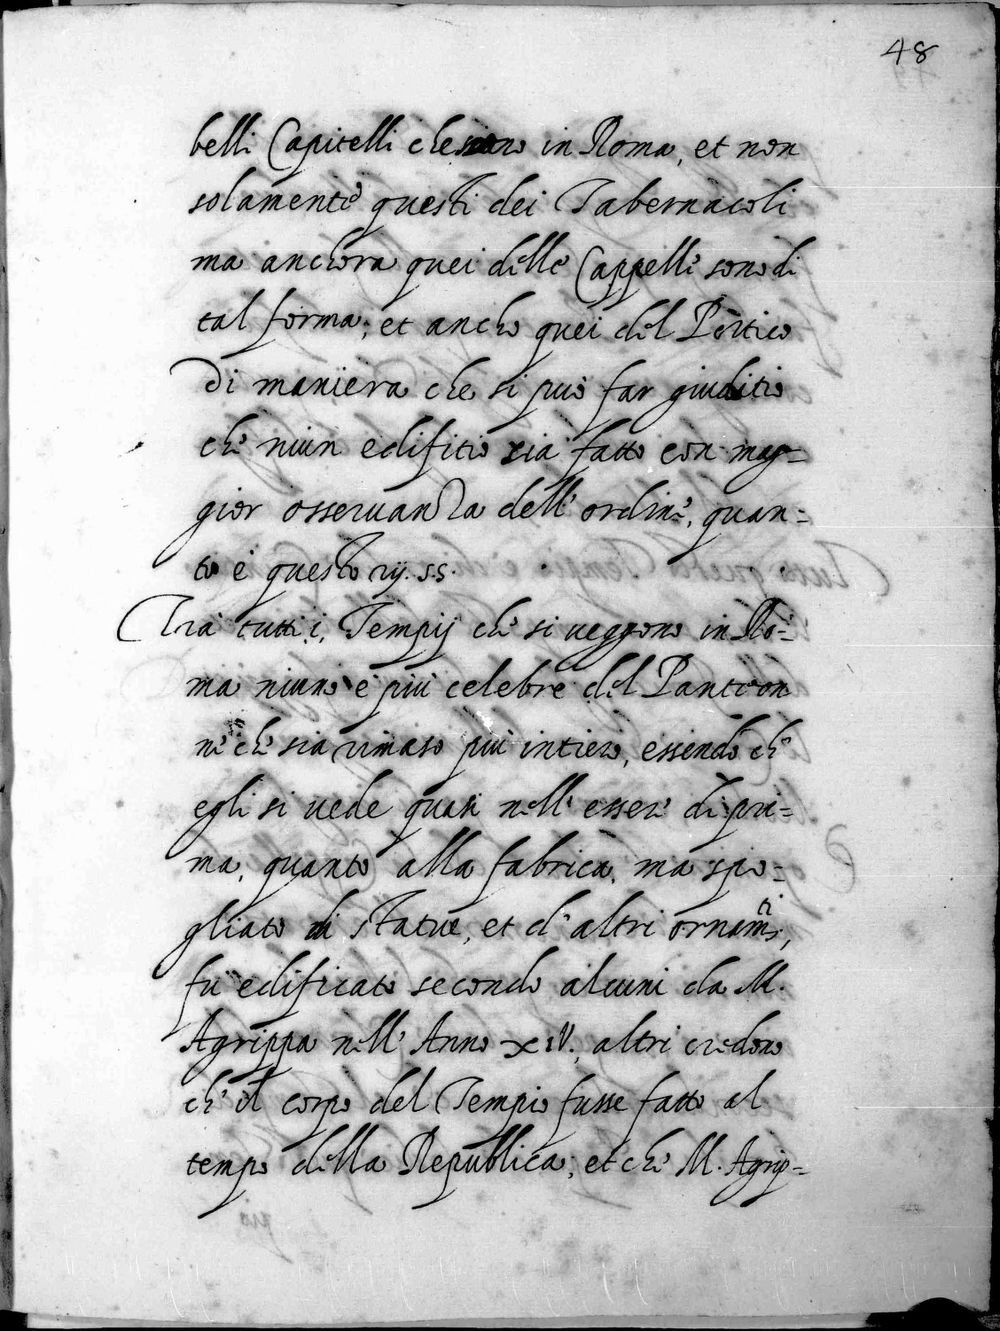 48
belli Capitelli che sono in Roma, et non
solamente questi dei Tabernacoli
ma anchora quei delle Cappelle sono di
tal forma; et ancho quei del Portico
Di maniera che si può far giuditio
che niun edifitio sia fatto con mag=
gior osservanza dell' ordine, quan=
to è questo
Trà tutti i, Tempij che si veggono in Ro=
ma niuno è più celebre del Panteon
ne che sia rimaso più intiero, essendo che
egli si vede quasi nell' essere di pri=
ma, quanto alla fabrica, ma spo=
gliato di statue, et d' altri ornamti,
fu edificato secondo alcuni da M.
Agrippa nell' Anno XIV., altri credono
che il corpo del Tempio fusse fatto al
tempo della Republica; et che M. Agrip=